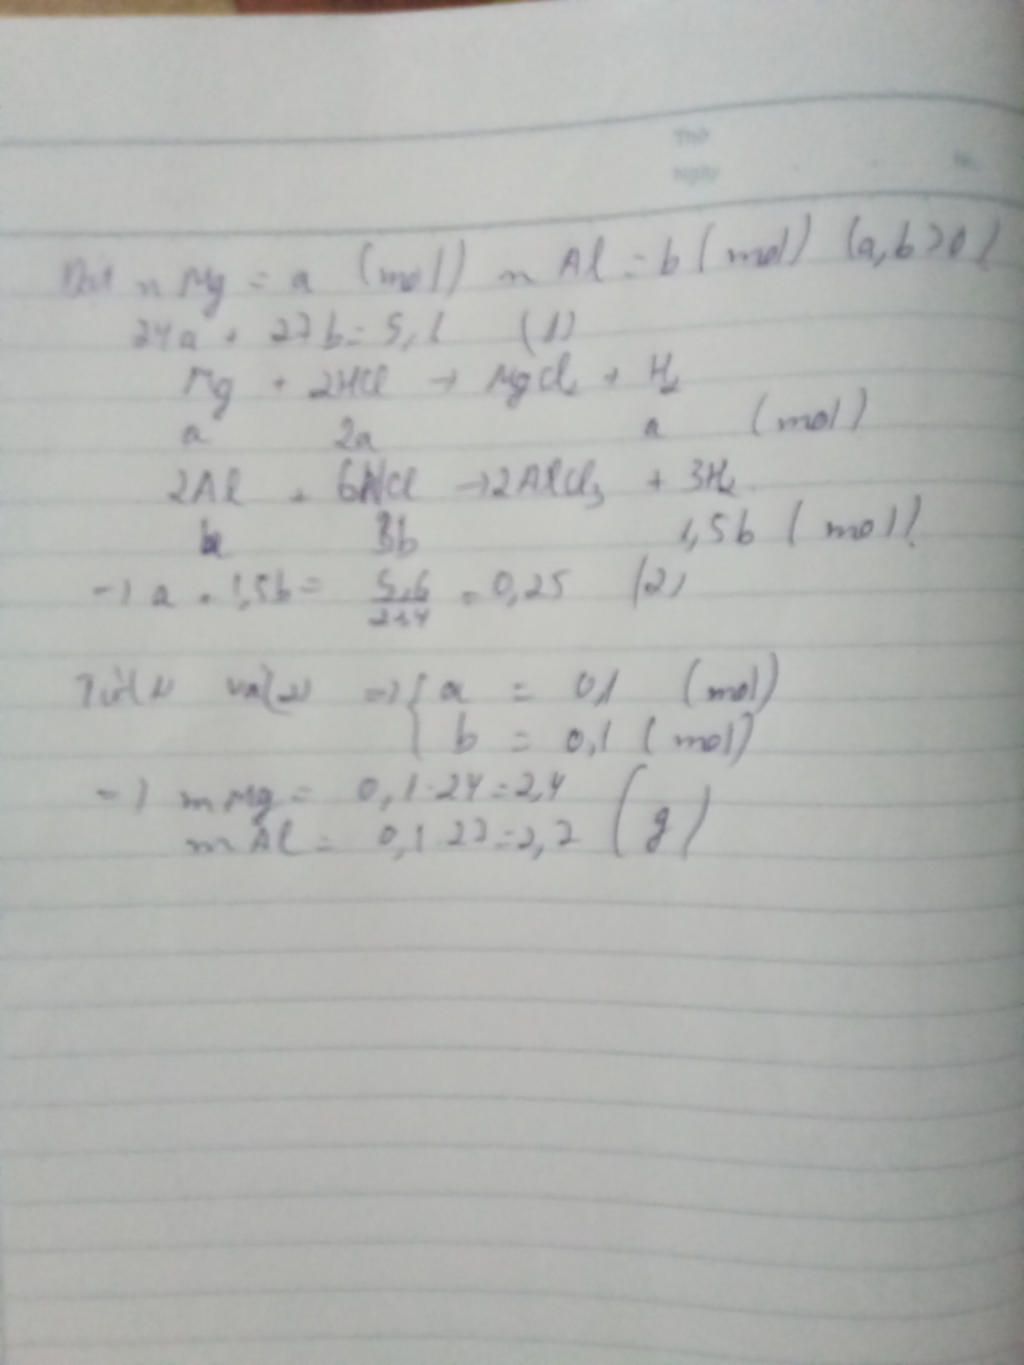 Thứ
Ngày No.
Đặt n Mg = a (mol) n Al = b (mol) (a,b>0)
24a + 27b = 5,1 (1)
Mg + 2HCl → MgCl₂ + H₂
a 2a a (mol)
2Al + 6HCl → 2AlCl₃ + 3H₂
b 3b 1,5b (mol)
→ a + 1,5b = 5,6/22,4 = 0,25 (2)
Từ (1) và (2) => { a = 0,1 (mol)
b = 0,1 (mol)
→ m Mg = 0,1.24 = 2,4
m Al = 0,1.27 = 2,7 (g)